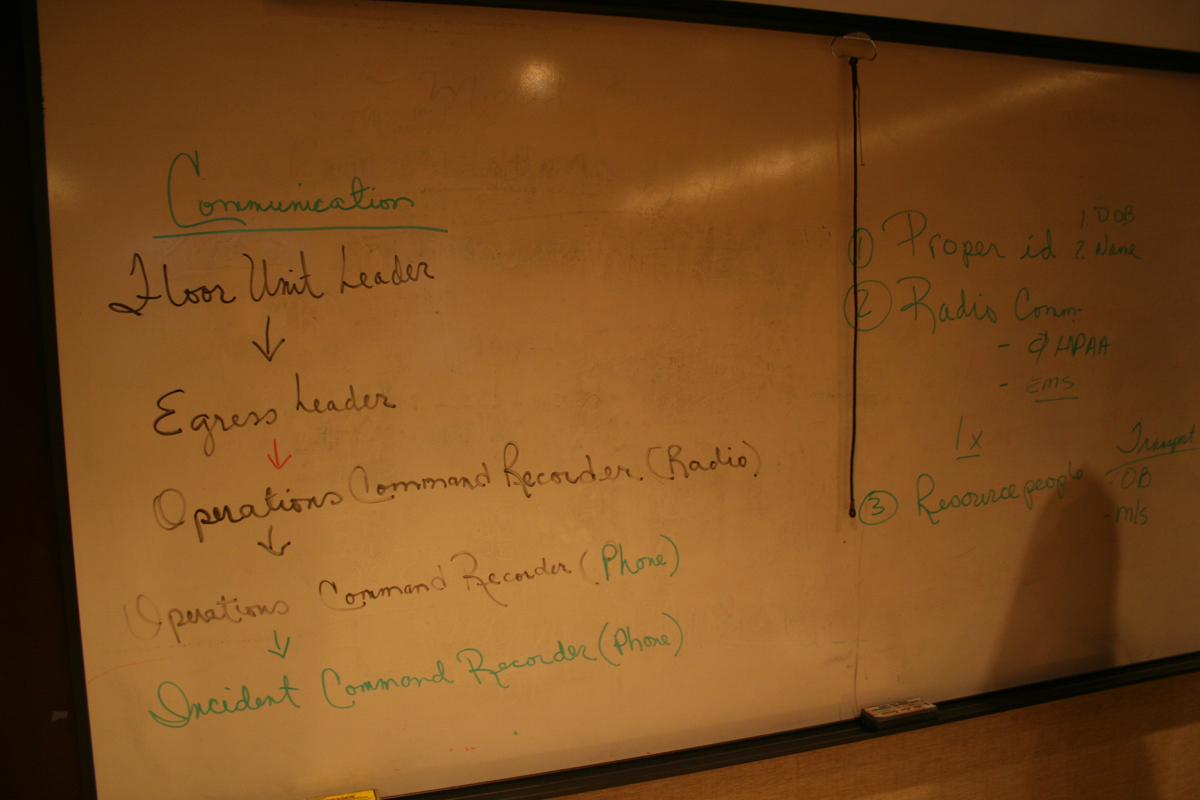 Communication
Floor Unit Leader
↓
Egress Leader
↓
Operations Command Recorder (Radio)
↓
Operations Command Recorder (Phone)
↓
Incident Command Recorder (Phone)
① Proper id 1. DOB
2. Name
② Radio Comm.
- HPAA
- EMS
1x
③ Resource people
Transport
- OB
- m/s